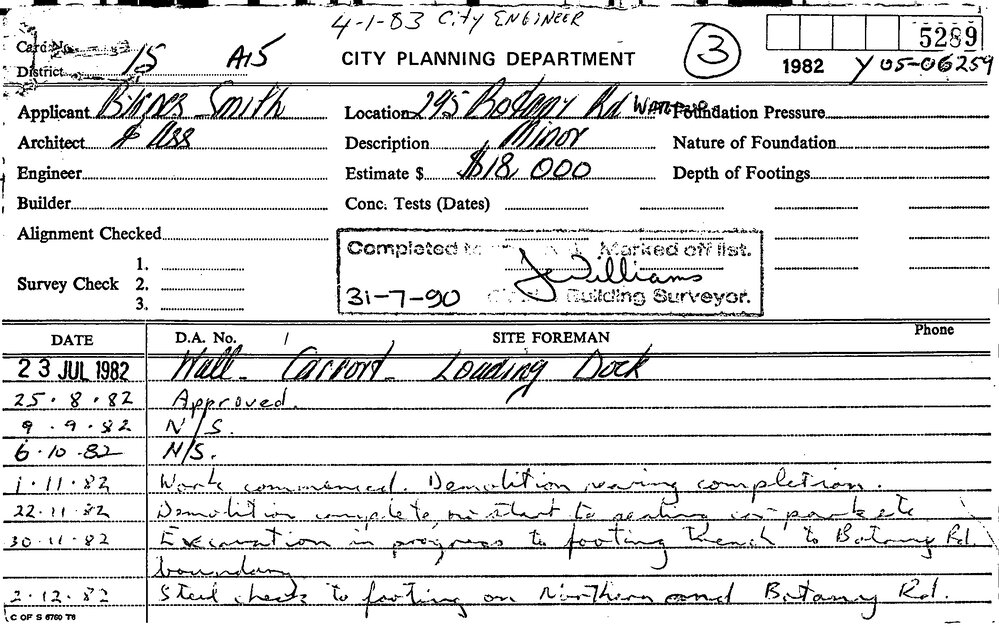 4-1-83 City ENGINEER
Card No.
District 15 A15 CITY PLANNING DEPARTMENT 3 5289
1982 Y 05-06259
Applicant Smith Location 295 Botany Rd Foundation Pressure
Architect & Ass Description Minor Nature of Foundation
Engineer Estimate $ $18,000 Depth of Footings
Builder Conc. Tests (Dates)
Alignment Checked
Completed Marked off list.
Survey Check 1.
2.
3.
J Williams
31-7-90 Building Surveyor.
DATE D.A. No. / SITE FOREMAN Phone
23 JUL 1982 Wall - Carport - Loading Dock
25.8.82 Approved.
9.9.82 N/S.
6.10.82 N/S.
1.11.82 Work commenced. Demolition nearing completion.
22.11.82 Demolition complete, no start to
30.11.82 Excavation in progress to footing trench to Botany Rd.
boundary
2.12.82 Steel check to footing on Northern and Botany Rd.
C OF S 6760 T6